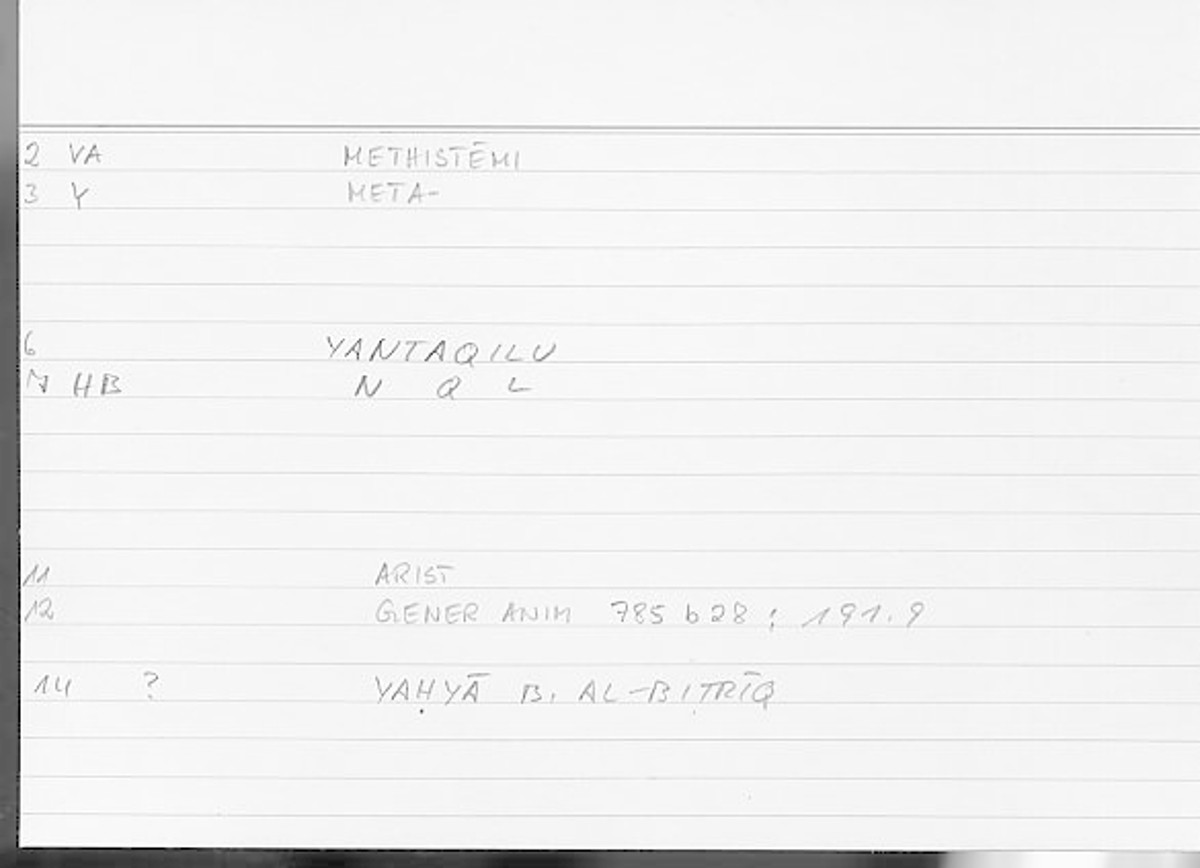 2 VA METHISTĒMI
3 Y META-
6 YANTAQILU
7 HB N Q L
11 ARIST
12 GENER ANIM 785 b 28 ; 191.9
14 ? YAḤYĀ B. AL-BIṬRĪQ